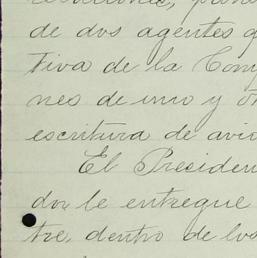 de dos agentes
tiva de la Com
nes de uno y
escritura de avio
El Presiden
don le entregue
tre, dentro de los